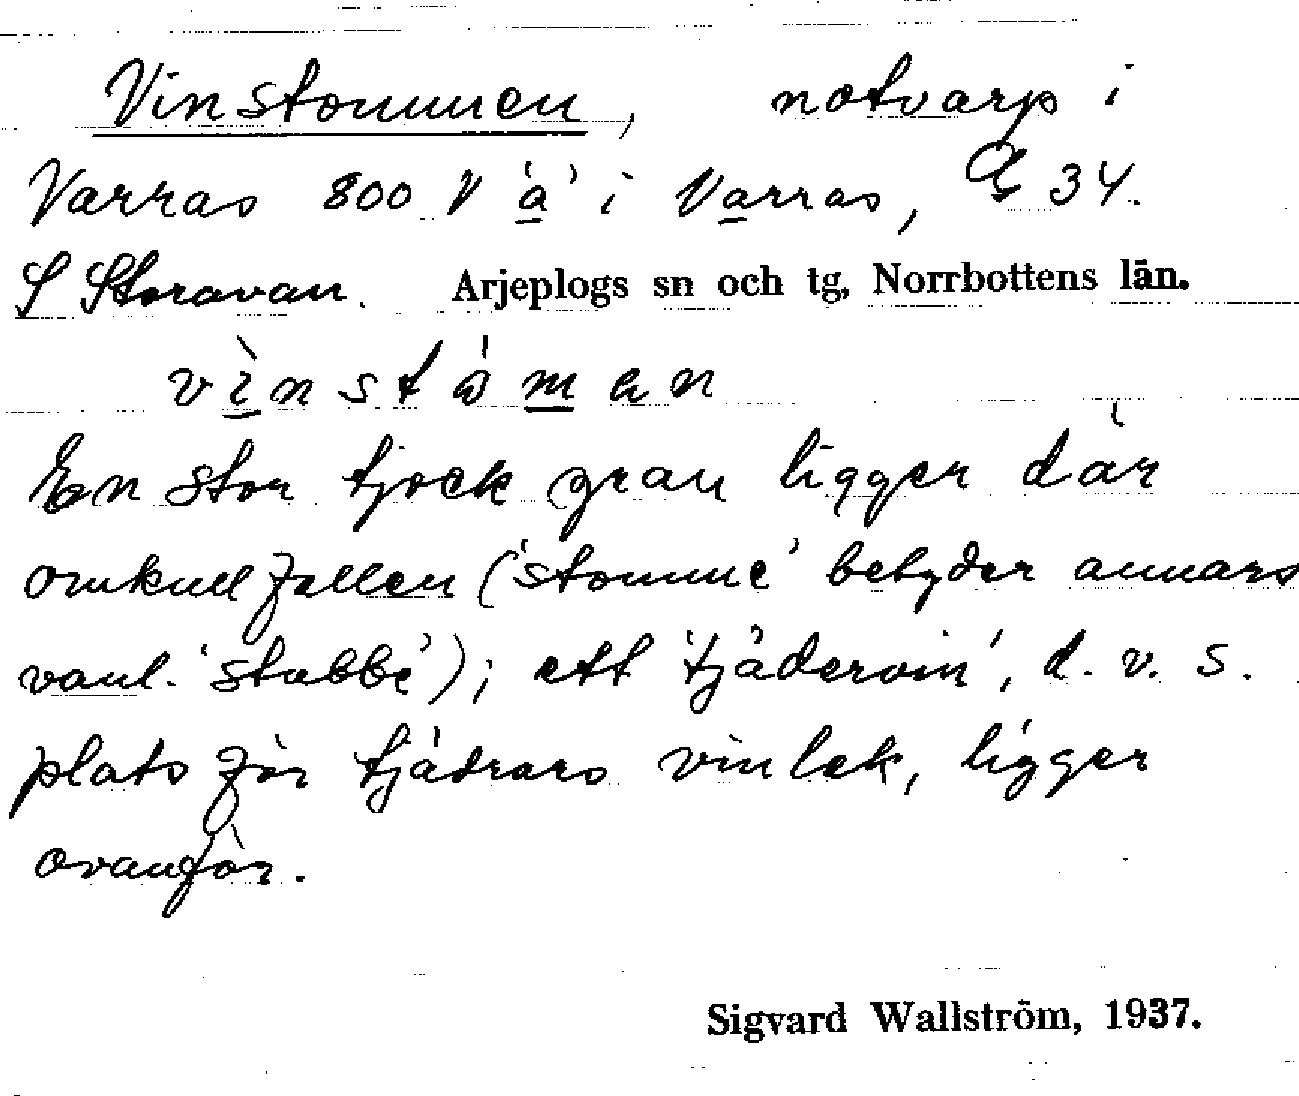 Vinstommen, notvarp i
Varras 800 V 'a' i Varras, G 34.
S Storavan. Arjeplogs sn och tg, Norrbottens län.
vìnståman
En stor tjock gran ligger där
omkullfallen ('stomme' betyder annars
vanl. 'stubbe'); ett 'tjädervin', d. v. s.
plats för tjädrars vinlek, ligger
ovanför.
Sigvard Wallström, 1937.